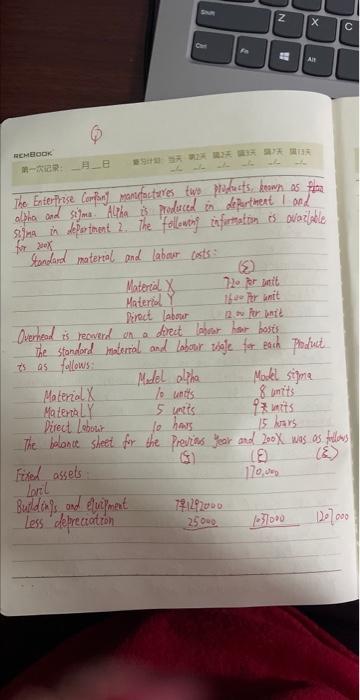 Shift
Z
X
C
Ctrl
Fn
Alt
REMBOOK
第一次记录: 月 日 复习计划: 当天 第2天 第7天
The Enterprise Company manufactures two products, known as
alpha and sigma. Alpha is produced in department 1 and
sigma in department 2. The following information is available
for 200X
Standard material and labour costs:
(£)
Material X 7.20 Per unit
Material Y 16.00 Per unit
Direct labour 12.00 Per unit
Overhead is recoverd on a direct labour hour basis
The standard material and labour usage for each Product
is as follows:
Model alpha Model sigma
Material X 10 units 8 units
Material Y 5 units 9 units
Direct Labour 10 hours 15 hours
The balance sheet for the Previous year end 200X was as follows
(£) (£) (£)
Fixed assets:
170,000
Buildings and equipment 1292000
Less depreciation 25000 1037000 1207000